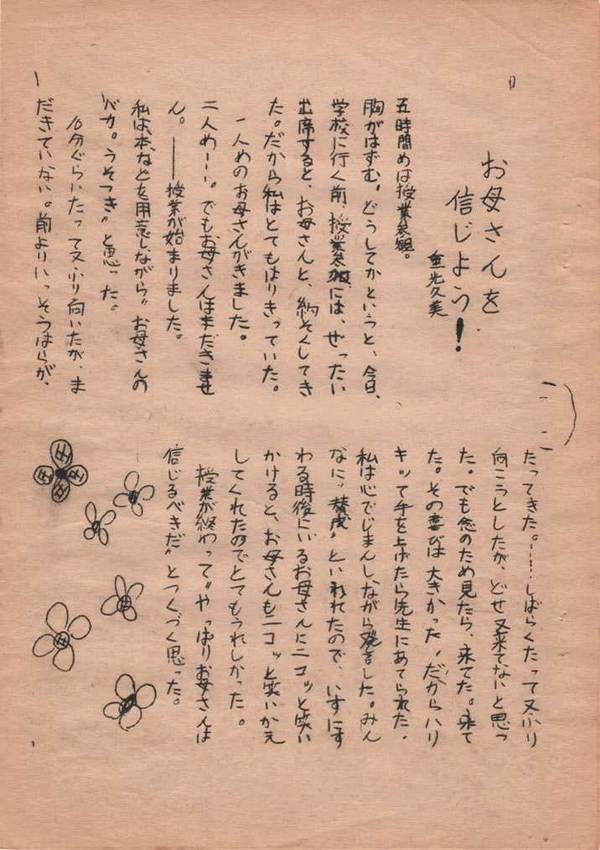 お母さんを
信じよう！
重光久美
五時間めは授業参観。
胸がはずむ。どうしてかというと、今日、
学校に行く前、授業参観には、ぜったい
出席すると、お母さんと、約そくしてき
た。だから私はとてもはりきっていた。
一人めのお母さんがきました。
二人め……。でもお母さんはまだきませ
ん。――授業が始まりました。
私は、本などを用意しながら〝お母さんの
バカ。うそつき〟と思った。
10分ぐらいたって又ふり向いたが、ま
だきていない。前よりいっそうはらが、
たってきた。……しばらくたって又ふり
向こうとしたが、どせ又来てないと思っ
た。でも念のため見たら、来てた。来て
た。その喜びは大きかった。だからハリ
キッて手を上げたら先生にあてられた。
私は心でじまんしながら発言した。みん
なに〝賛成〟といわれたので、いすにす
わる時後にいるお母さんにニコッと笑い
かけると、お母さんもニコッと笑いかえ
してくれたのでとてもうれしかった。
授業が終わって〝やっぱりお母さんは
信じるべきだ〟とつくづく思った。